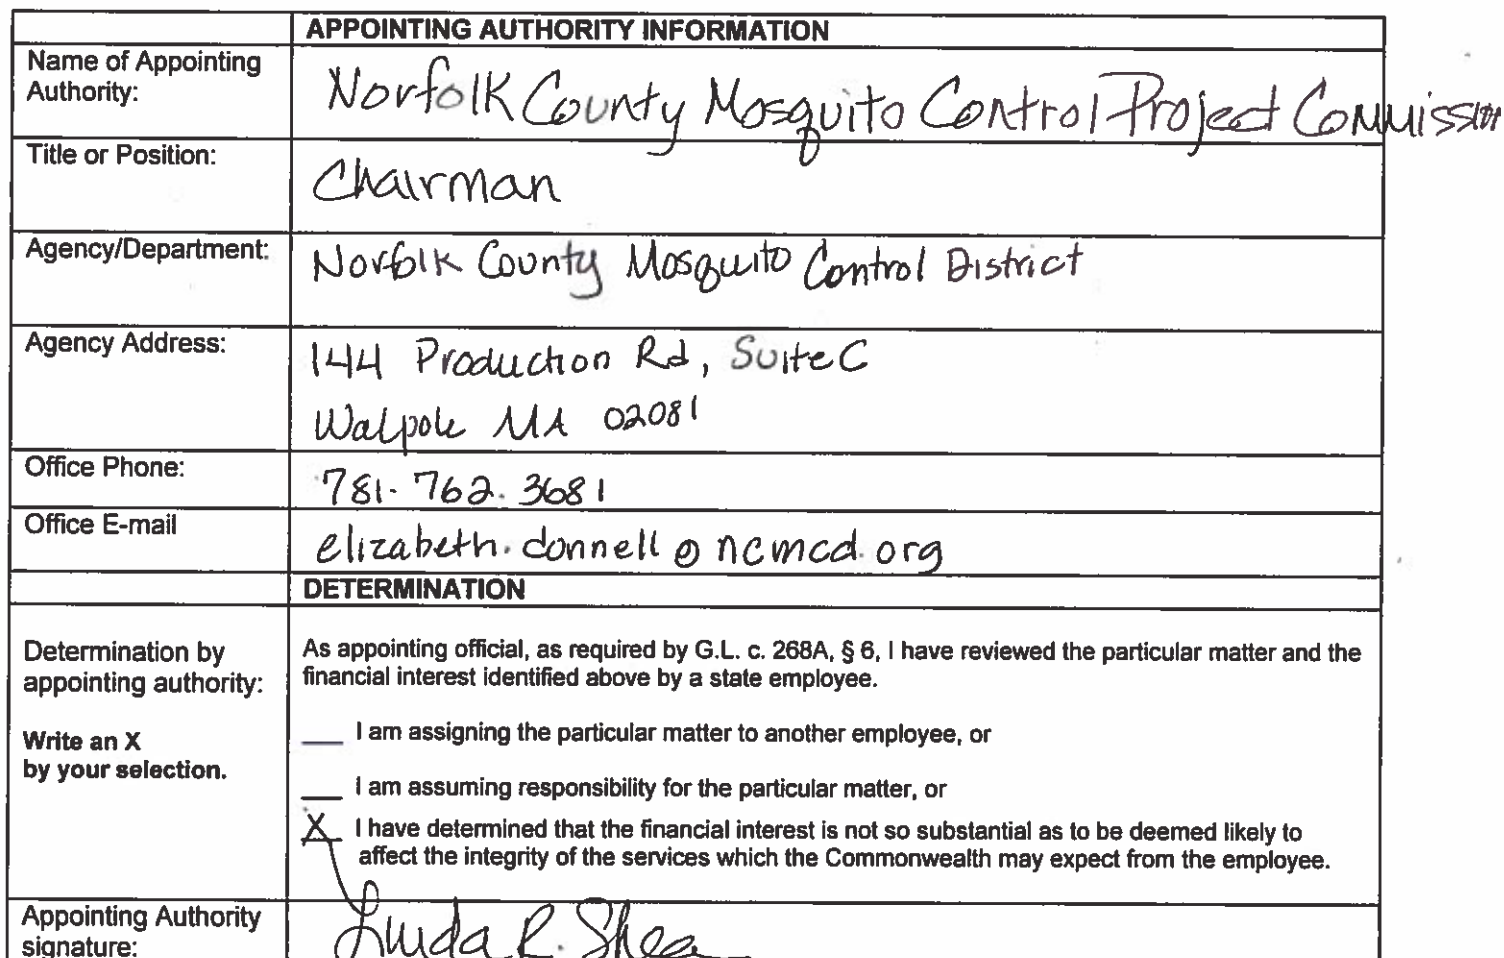 APPOINTING AUTHORITY INFORMATION
Name of Appointing
Authority:
Norfolk County Mosquito Control Project Commission
Title or Position:
Chairman
Agency/Department:
Norfolk County Mosquito Control District
Agency Address:
144 Production Rd, Suite C
Walpole MA 02081
Office Phone:
781. 762. 3681
Office E-mail
elizabeth.donnell@ncmcd.org
DETERMINATION
Determination by
appointing authority:
Write an X
by your selection.
As appointing official, as required by G.L. c. 268A, § 6, I have reviewed the particular matter and the
financial interest identified above by a state employee.
___ I am assigning the particular matter to another employee, or
___ I am assuming responsibility for the particular matter, or
X I have determined that the financial interest is not so substantial as to be deemed likely to
affect the integrity of the services which the Commonwealth may expect from the employee.
Appointing Authority
signature:
Linda R. Shea